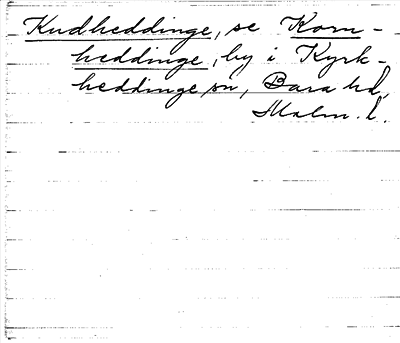 Knudheddinge, se Korn-
heddinge, by i Kyrk-
heddinge sn, Bara hd,
Malm. l.